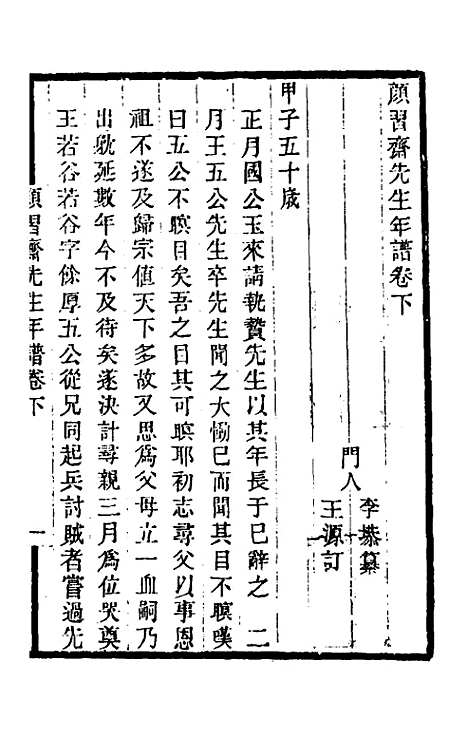 顏習齋先生年譜卷下
門人
李塨纂
王源訂
甲子五十歲
正月國公玉來請執贄先生以其年長于已辭之 二
月王五公先生卒先生聞之大慟已而聞其目不瞑嘆
曰五公不瞑目矣吾之目其可瞑耶初志尋父以事恩
祖不遂及歸宗值天下多故又思爲父母立一血嗣乃
出躭延數年今不及待矣遂決計尋親三月爲位哭奠
王若谷若谷字餘厚五公從兄同起兵討賊者嘗過先
顏習齋先生年譜卷下
一